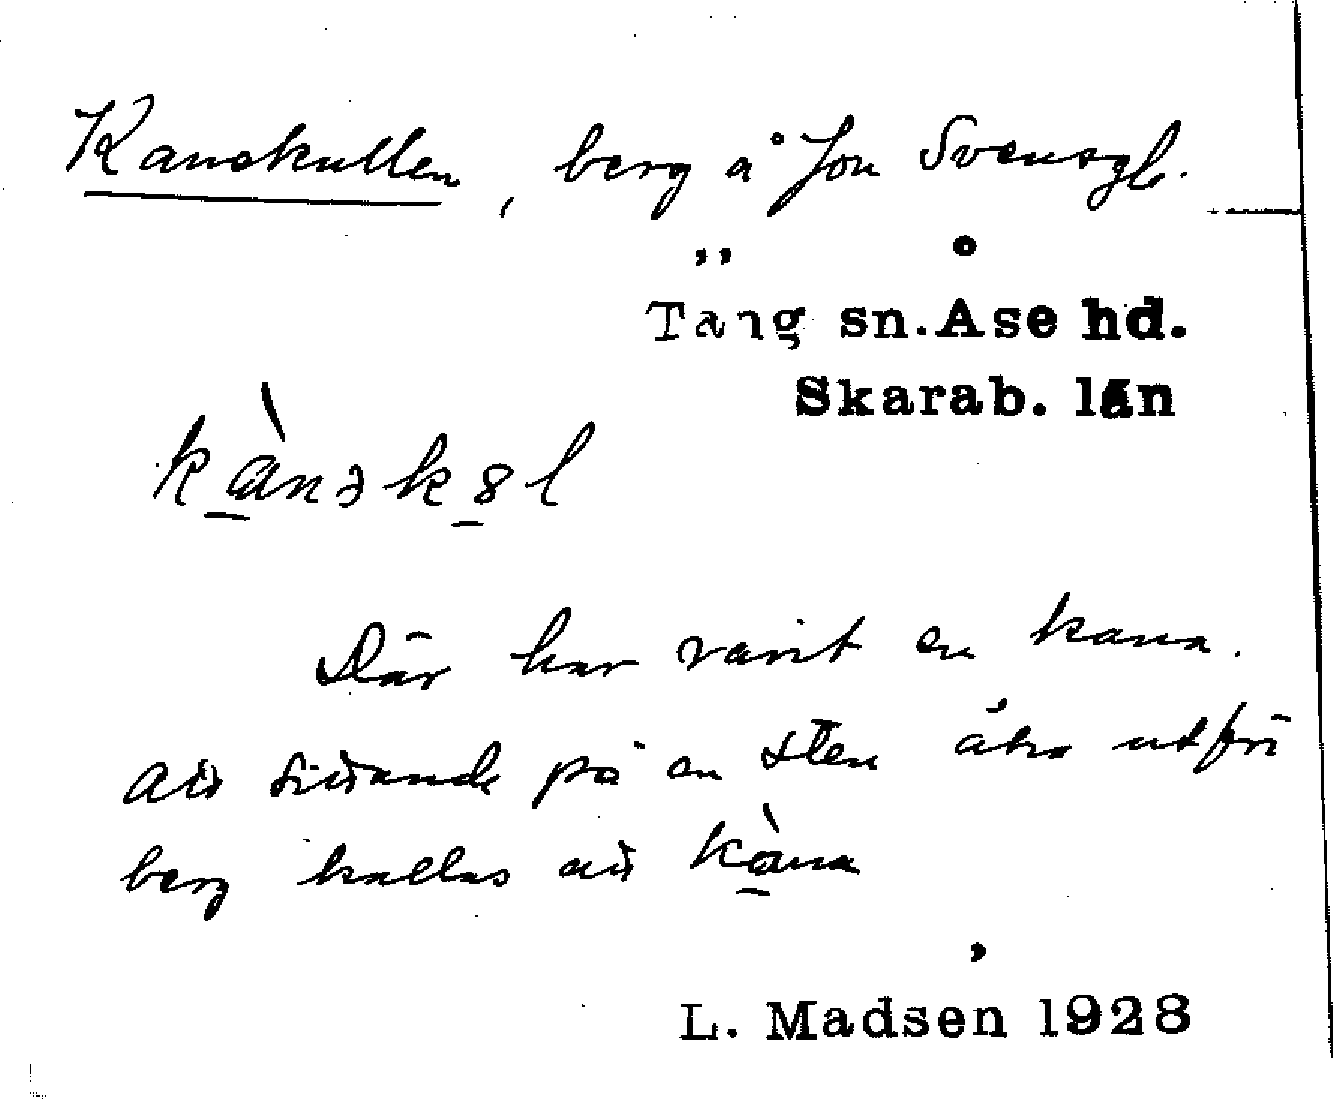 Kanekullen, berg å Jon Svensgb.
Täng sn. Åse hd.
Skarab. län
kànəkəl
Där har varit en kana.
Att sittande på en sten åka utför
berg kallas att kàna
L. Madsen 1928